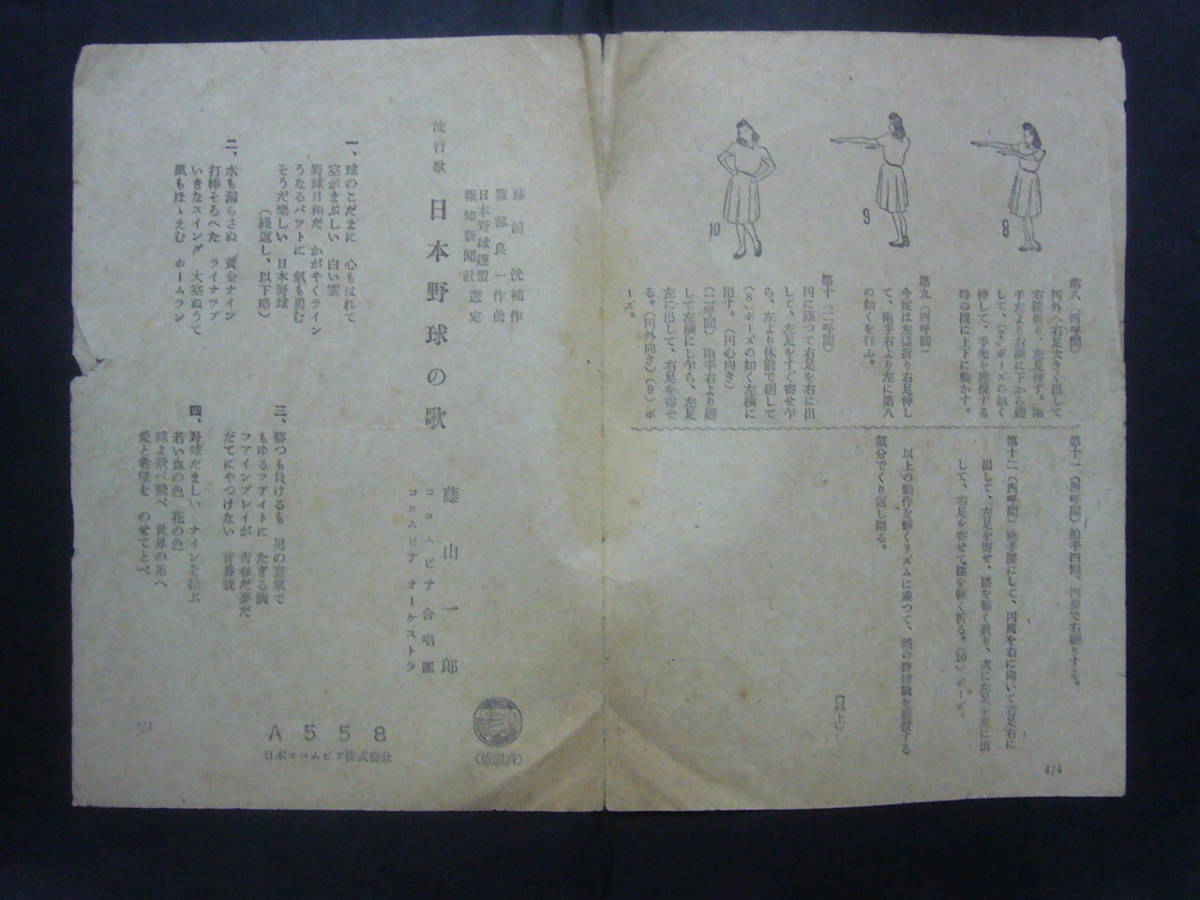 第八（四呼間）
円外へ右足大きく出して
右膝折り、左足伸す。兩
手左より右横に下から廻
して、（8）ポーズの如く
伸して、手先を應援する
時の樣に上下に動かす。
第九（四呼間）
今度は左膝折り右足伸し
て、兩手右より左に第八
の如くを行ふ。
第十（二呼間）
円に添つて右足を右に出
して、左足をすぐ寄せ乍
ら、左より体前で廻して
（8）ポーズの如く左横に
出す。（円心向き）
（二呼間）兩手右より廻
して左横にし乍ら、左足
左に出して、右足を寄せ
る。（円外向き）（9）ポ
ーズ。
8
9
10
第十一（四呼間）拍手四回、四歩で右廻りする。
第十二（四呼間）兩手腰にして、円周を右に向いて右足右に
出して、左足を寄せ、膝を軽く折り、次に左足左差に出
して、右足を寄せて、膝を軽く折る。（10）ポーズ。
以上の動作を軽くリズムに添つて、
氣分でくり返し踊る。
（以上）
4/4
藤浦洸補作
服部良一作曲
日本野球連盟
報知新聞社 選定
流行歌 日本野球の歌
藤山一郎
コロムビア合唱團
コロムビア オーケストラ
一、球のこだまに 心もはれて
空がまぶしい 白い雲
野球日和だ かがやくライン
うなるバットに 氣も勇む
そうだ樂しい 日本野球
（繰返し、以下略）
二、水も漏らさぬ 黄金ナイン
打棒そろへた ライナップ
いきなスイング 大空ぬうて
風もほゝえむ ホームラン
三、勝つも負けるも 男の意氣で
もゆるファイトに たぎる胸
ファインプレイが 青春だ夢だ
だてにやつけない 背番號
四、野球だましい ナインを結ぶ
若い血の色 花の色
球よ飛べ飛べ 世界の果へ
愛と希望を のせてとべ
A558
日本コロムビア株式會社